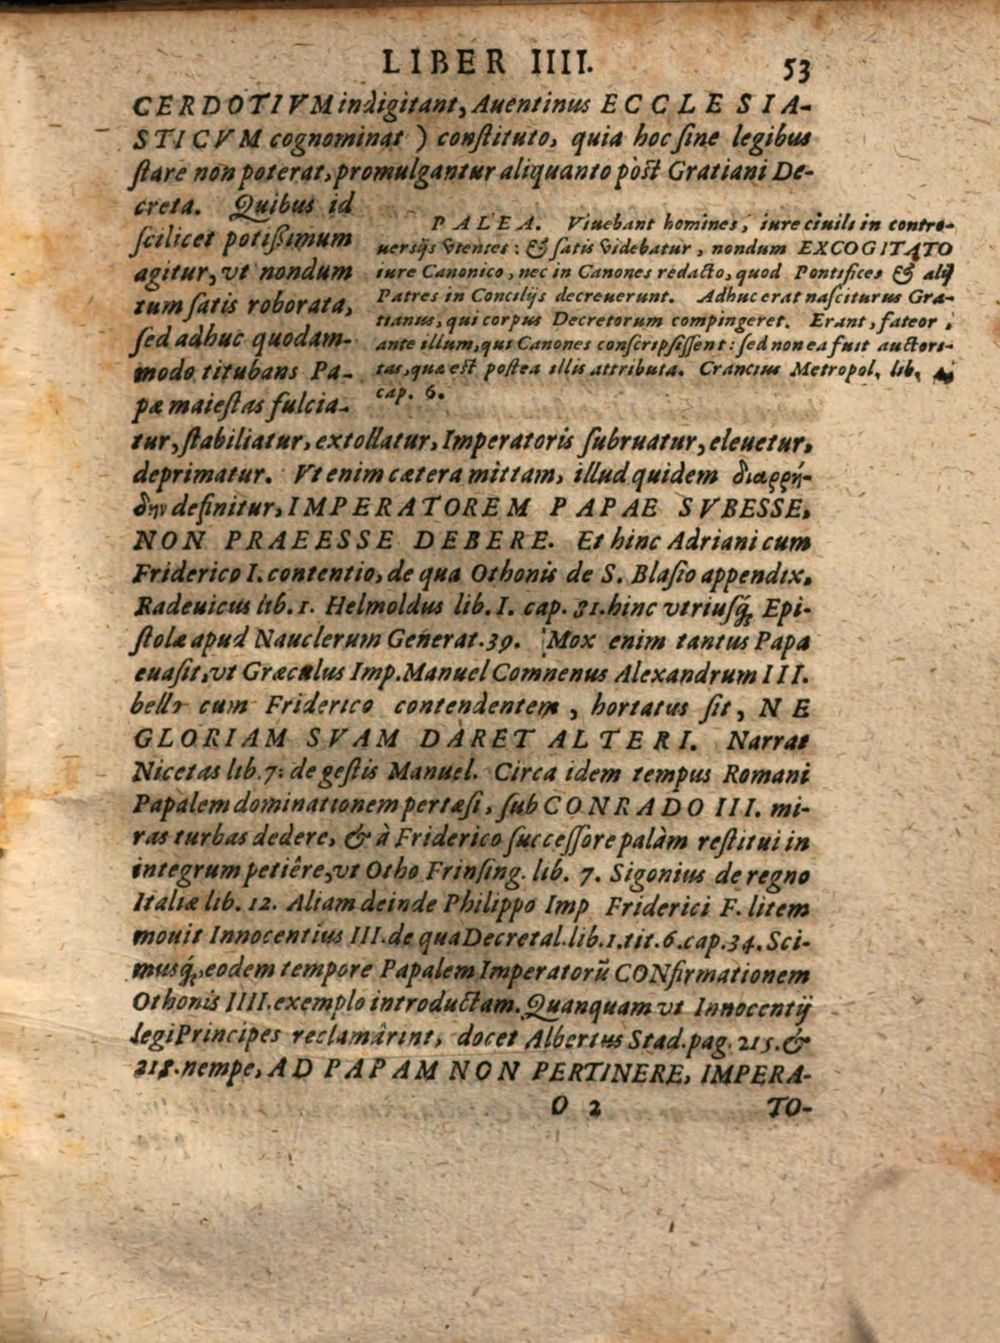 LIBER IIII. 53
CERDOTIVM indigitant, Auentinus ECCLESIA-
STICVM cognominat ) conſtituto, quia hoc ſine legibus
ſtare non poterat, promulgantur aliquanto pòſt Gratiani De-
creta. Quibus id
ſcilicet potißimum
agitur, vt nondum
tum ſatis roborata,
ſed adhuc quodam-
modo titubans Pa-
pæ maieſtas fulcia-
PALEA. Viuebant homines, iure ciuili in contro-
uerſijs vtentes: & ſatis videbatur, nondum EXCOGITATO
iure Canonico, nec in Canones redacto, quod Pontifices & alij
Patres in Concilijs decreuerunt. Adhuc erat naſciturus Gra-
tianus, qui corpus Decretorum compingeret. Erant, fateor,
ante illum, qui Canones conſcripſiſſent: ſed non ea fuit auctori-
tas, quæ eſt poſtea illis attributa. Crancius Metropol. lib.
cap. 6.
tur, ſtabiliatur, extollatur, Imperatoris ſubruatur, eleuetur,
deprimatur. Vt enim cætera mittam, illud quidem διαῤῥή-
δην definitur, IMPERATOREM PAPAE SVBESSE,
NON PRAEESSE DEBERE. Et hinc Adriani cum
Friderico I. contentio, de qua Othonis de S. Blaſio appendix,
Radeuicus lib. 1. Helmoldus lib. I. cap. 81. hinc vtriuſq́; Epi-
ſtolæ apud Nauclerum Generat. 39. Mox enim tantus Papa
euaſit, vt Græculus Imp. Manuel Comnenus Alexandrum III.
bello cum Friderico contendentem, hortatus ſit, NE
GLORIAM SVAM DARET ALTERI. Narrat
Nicetas lib. 7. de geſtis Manuel. Circa idem tempus Romani
Papalem dominationem pertæſi, ſub CONRADO III. mi-
ras turbas dedere, & à Friderico ſucceſſore palàm reſtitui in
integrum petiêre, vt Otho Frinſing. lib. 7. Sigonius de regno
Italiæ lib. 12. Aliam deinde Philippo Imp Friderici F. litem
mouit Innocentius III. de qua Decretal. lib. 1. tit. 6. cap. 34. Sci-
musq́; eodem tempore Papalem Imperatorũ CONfirmationem
Othonis IIII. exemplo introductam. Quanquam vt Innocentij
legi Principes reclamârint, docet Albertus Stad. pag. 215. &
nempe, AD PAPAM NON PERTINERE, IMPERA-
O 2 TO-